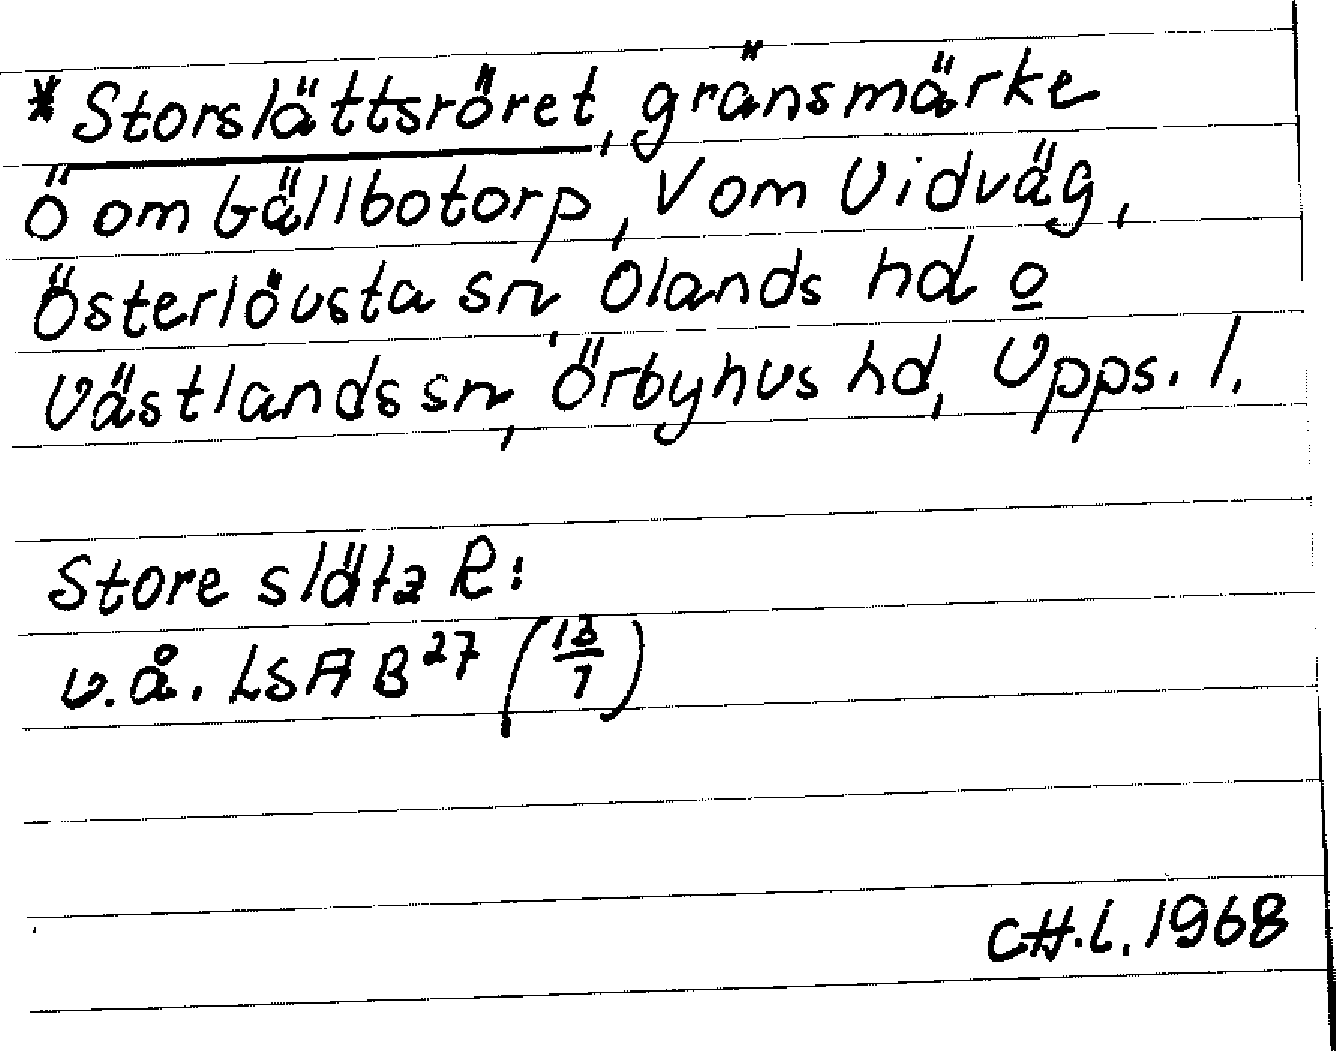 *Storslättsröret, gränsmärke
Ö om Gällbotorp, V om Vidväg,
Österlövsta sn, Olands hd o
Västlands sn, Örbyhus hd, Upps. l.
Store släta R:
u.å. LSA B²⁷ (13/7)
CH.L. 1968